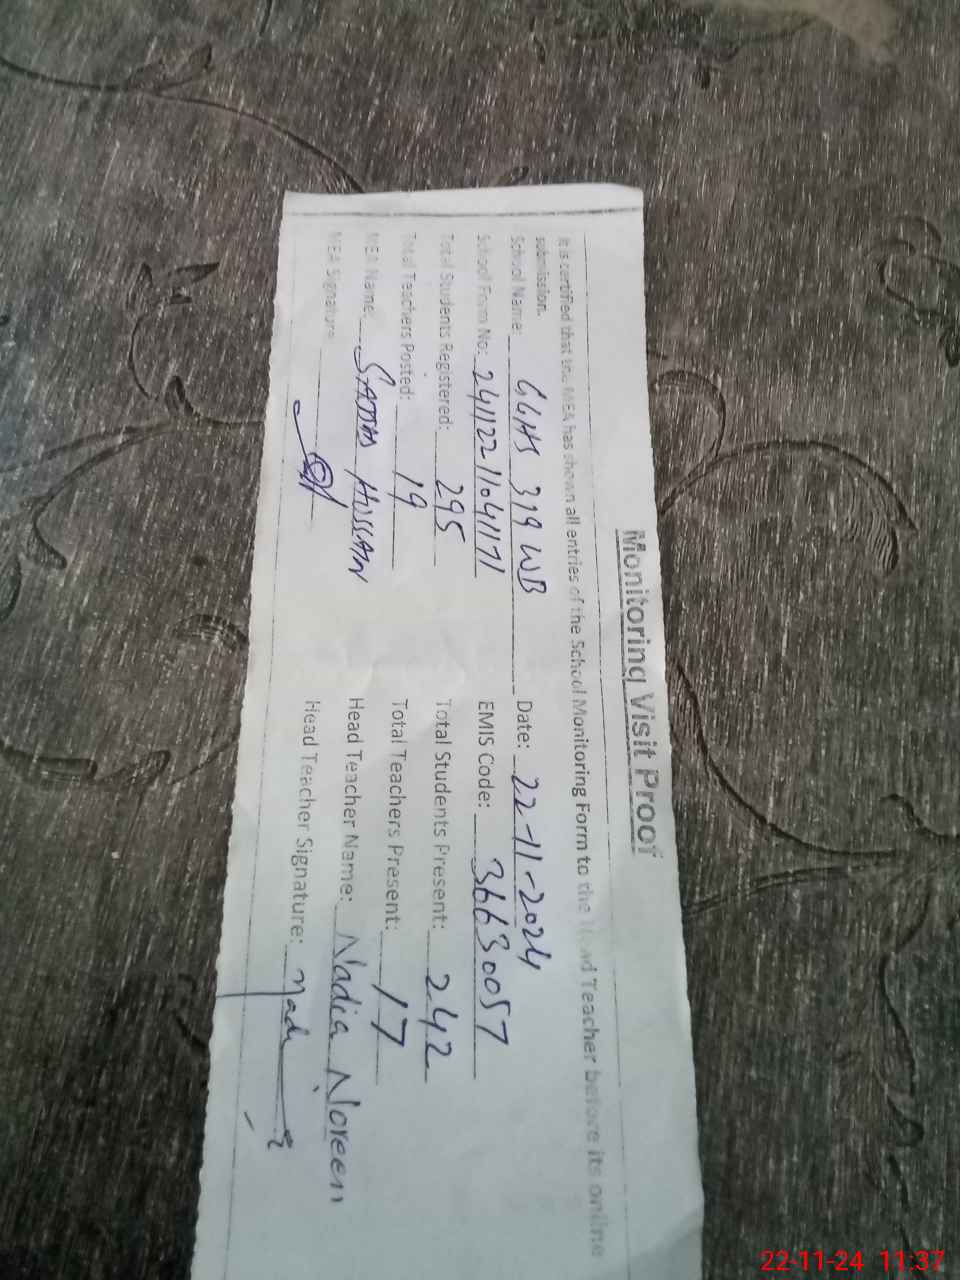 Monitoring Visit Proof
It is certified that the MEA has shown all entries of the School Monitoring Form to the Head Teacher before its online
submission.
School Name: GGHS 319 WB Date: 22-11-2024
School From No: EMIS Code: 36630057
Total Students Registered: 295 Total Students Present: 242
Total Teachers Posted: 19 Total Teachers Present: 17
MEA Name: Head Teacher Name: Nadia Noreen
MEA Signature Head Teacher Signature:
22-11-24 11:37